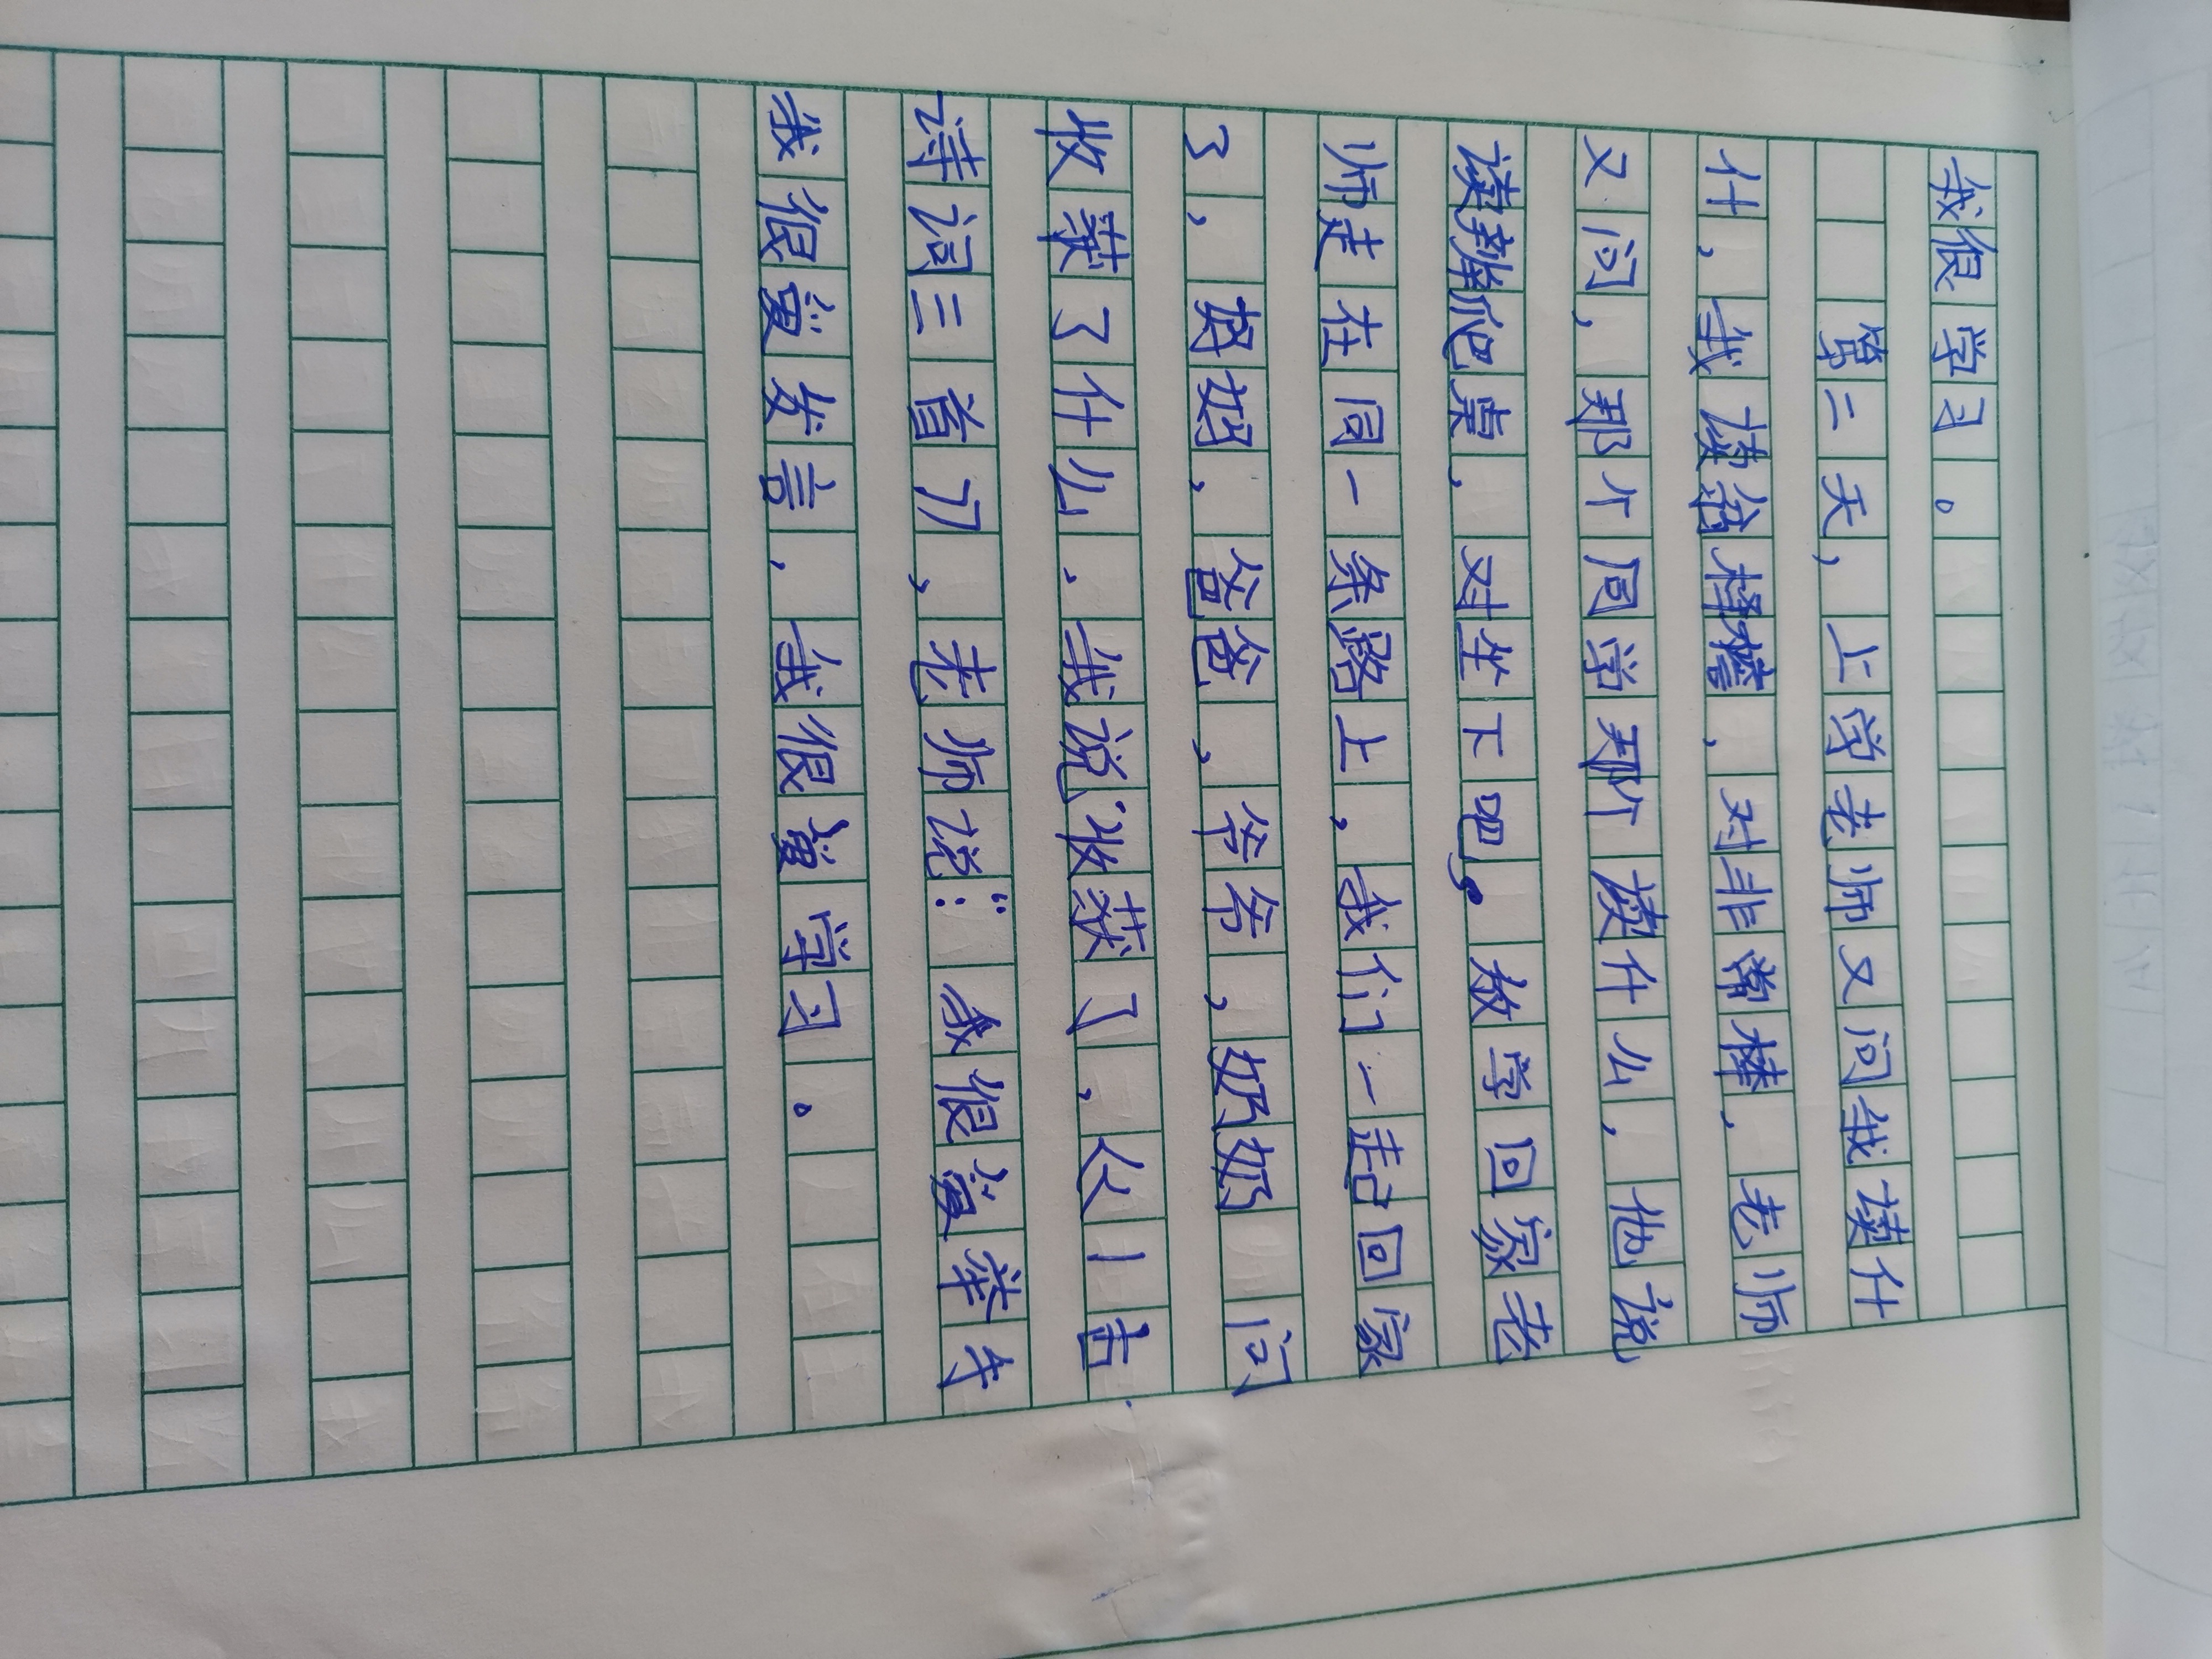 我很学习。
第二天，上学老师又问我读什
什，我读翁，对非常棒，老师
又问，那个同学那个读什么，他说
读，对坐下吧。放学回家老
师走在同一条路上，我们一起回家
了，妈妈，爸爸，爷爷，奶奶问
收获了什么．我说"收获了，从1古
诗词三首刀，老师说："我很爱举手
我很爱发言，我很爱学习。